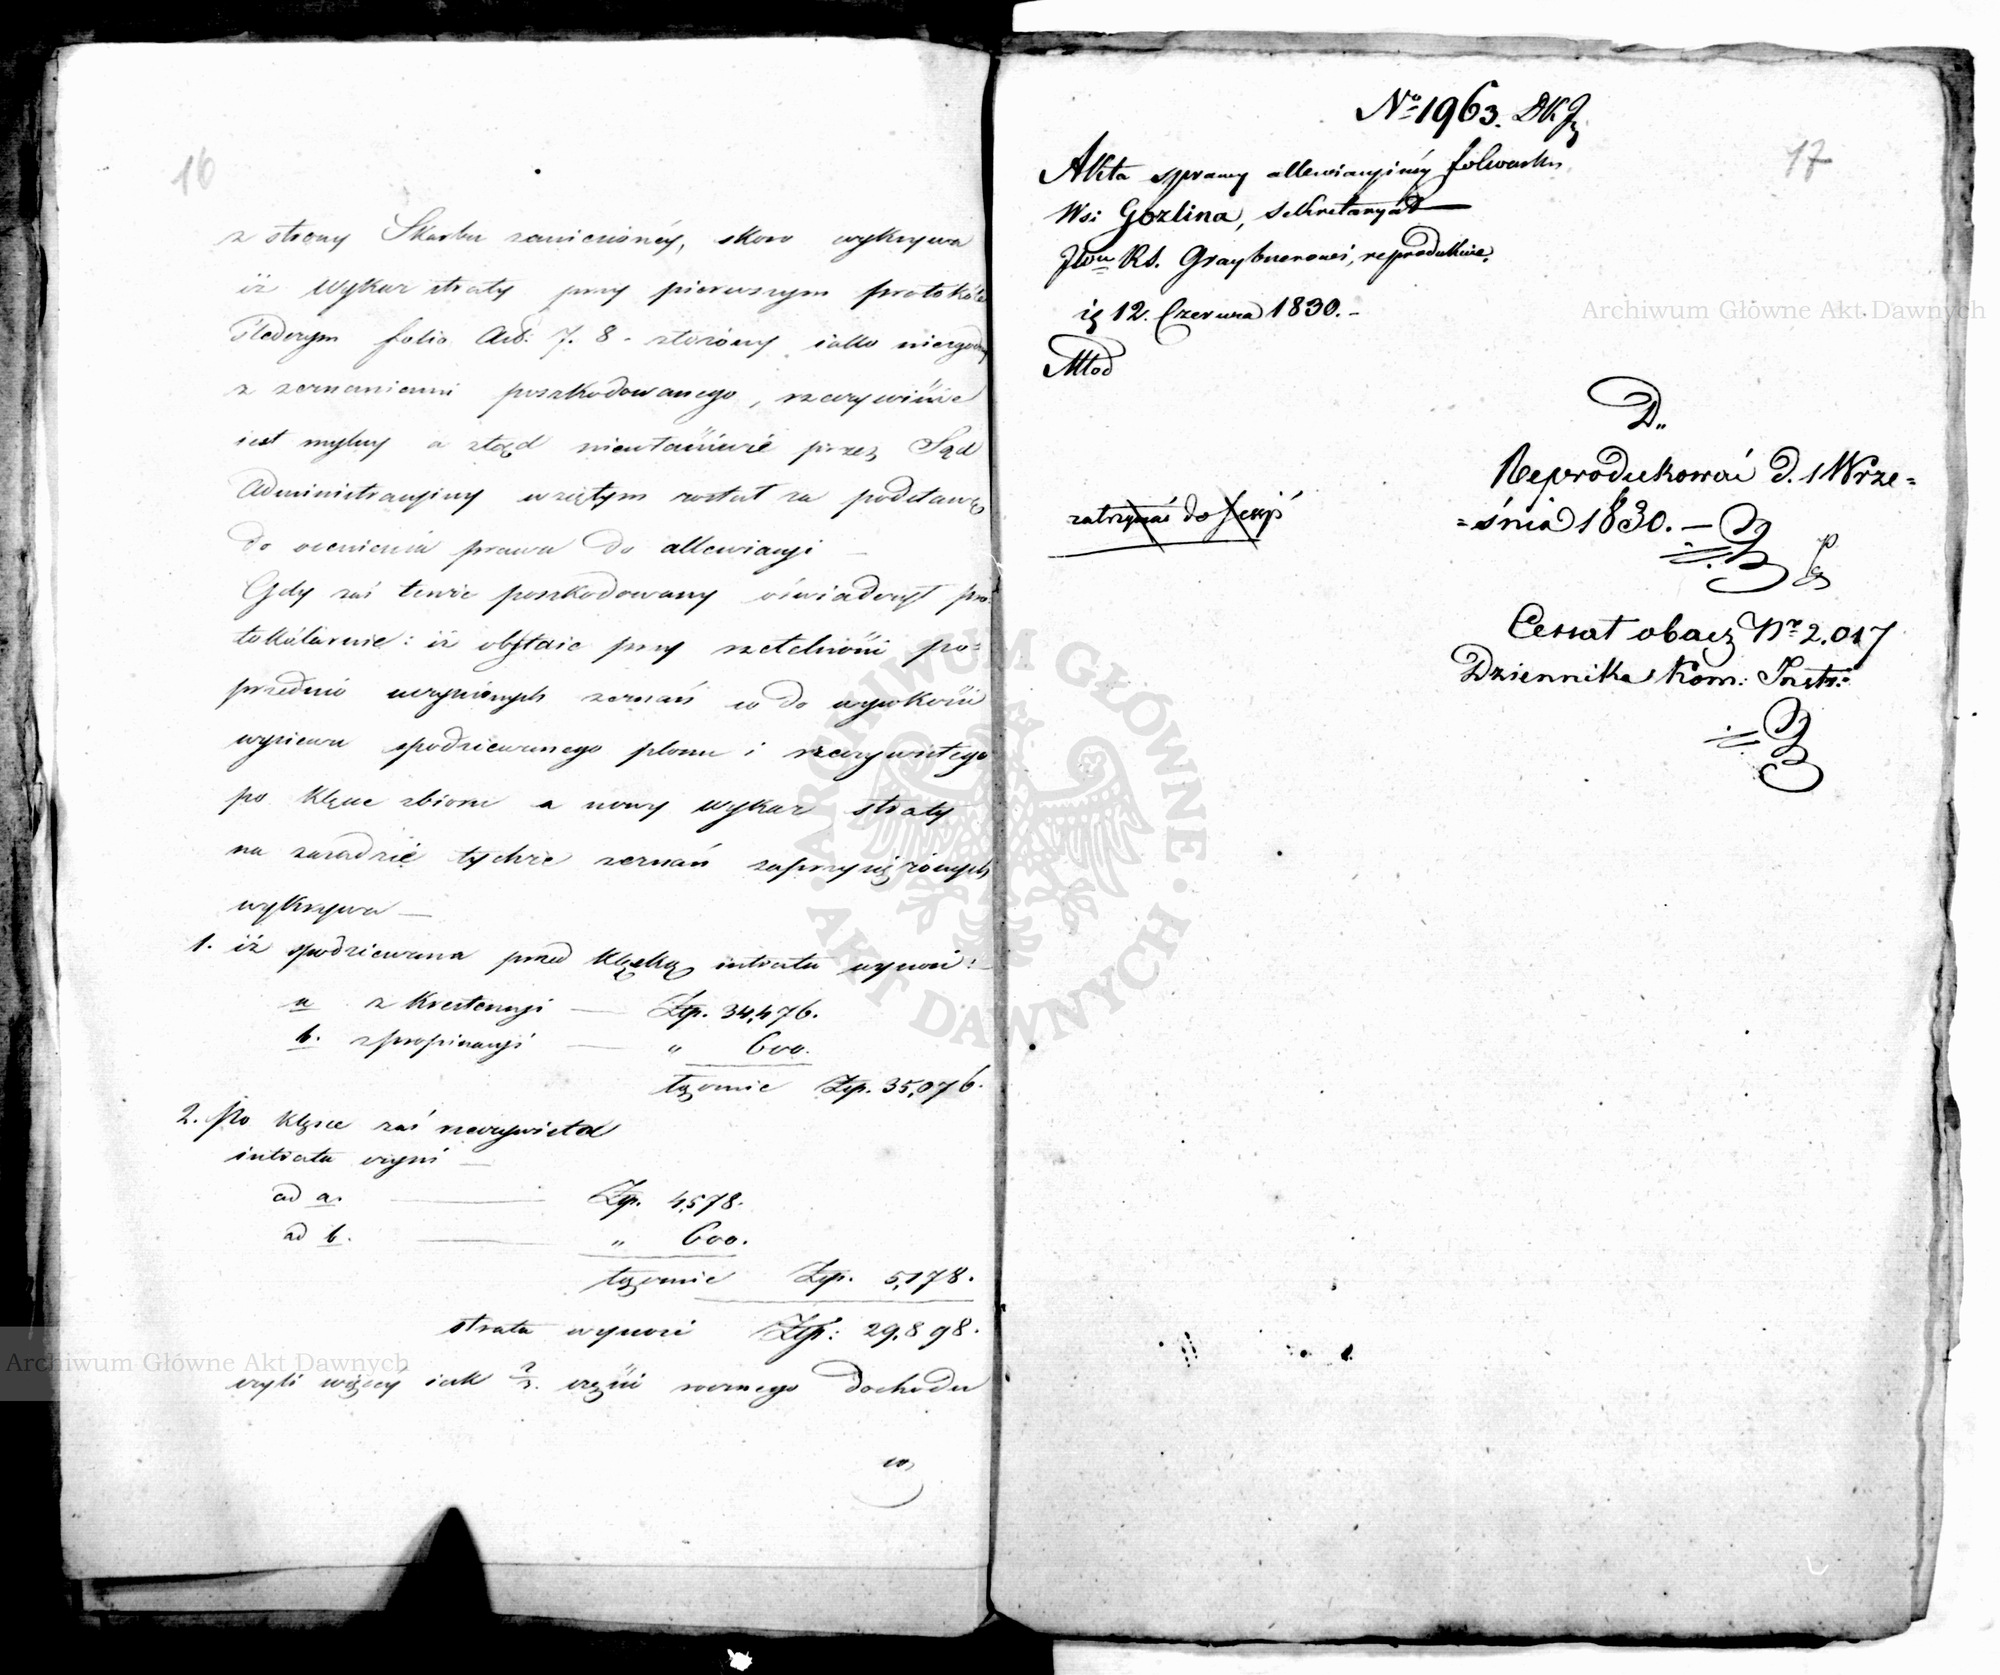 16
z strony Skarbu zaniesionéy, skoro wykrywa
iż Wykaz straty przy pierwszym protokóle
śledczym folio Act. 7. 8. złożony iako niezgodny
z zeznaniami poszkodowanego, rzeczywiście
iest mylny a ztąd niewłaściwie przez Sąd
Administracyiny wziętym został za podstawę
do ocenienia prawa do allewiacyi —
Gdy zaś tenże poszkodowany oświadczył pro-
tokólarnie: iż obstaie przy rzetelności po=
przednio uczynionych zeznań co do wysokości
wysiewu spodziewanego plonu i rzeczywistego
po klęsce zbioru a nowy wykaz straty
na zasadzie tychże zeznań zaprzysiężonych
wykrywa —
1. iż spodziewana przed klęską intrata wynosi:
a z Krestencyi — Złp. 34,476.
b. z propinacyi — " 600.
łącznie Złp. 35,076.
2. Po klęsce zaś rzeczywista
intrata czyni —
ad a. — Złp. 4,578.
ad b. — " 600.
łącznie Złp. 5,178.
strata wynosi Złp: 29,898.
czyli więcéy iak 2/3 części rocznego dochodu
co
17
No 1963. DKJ
Akta sprawy allewiacyinéy folwarku
Wsi Gozlina, Sekretaryat
JWu Rs. Graybnerowi, reprodukuie
ią 12. Czerwca 1830. -
Młod
zatrzymać do Sessyi
D.
Reprodukować d. 1 Wrze=
=śnia 1830. —
Cessat obacz Nr 2.017
Dziennika Kom: Instr:
Archiwum Główne Akt Dawnych
Archiwum Główne Akt Dawnych
ARCHIWUM GŁÓWNE · AKT DAWNYCH ·